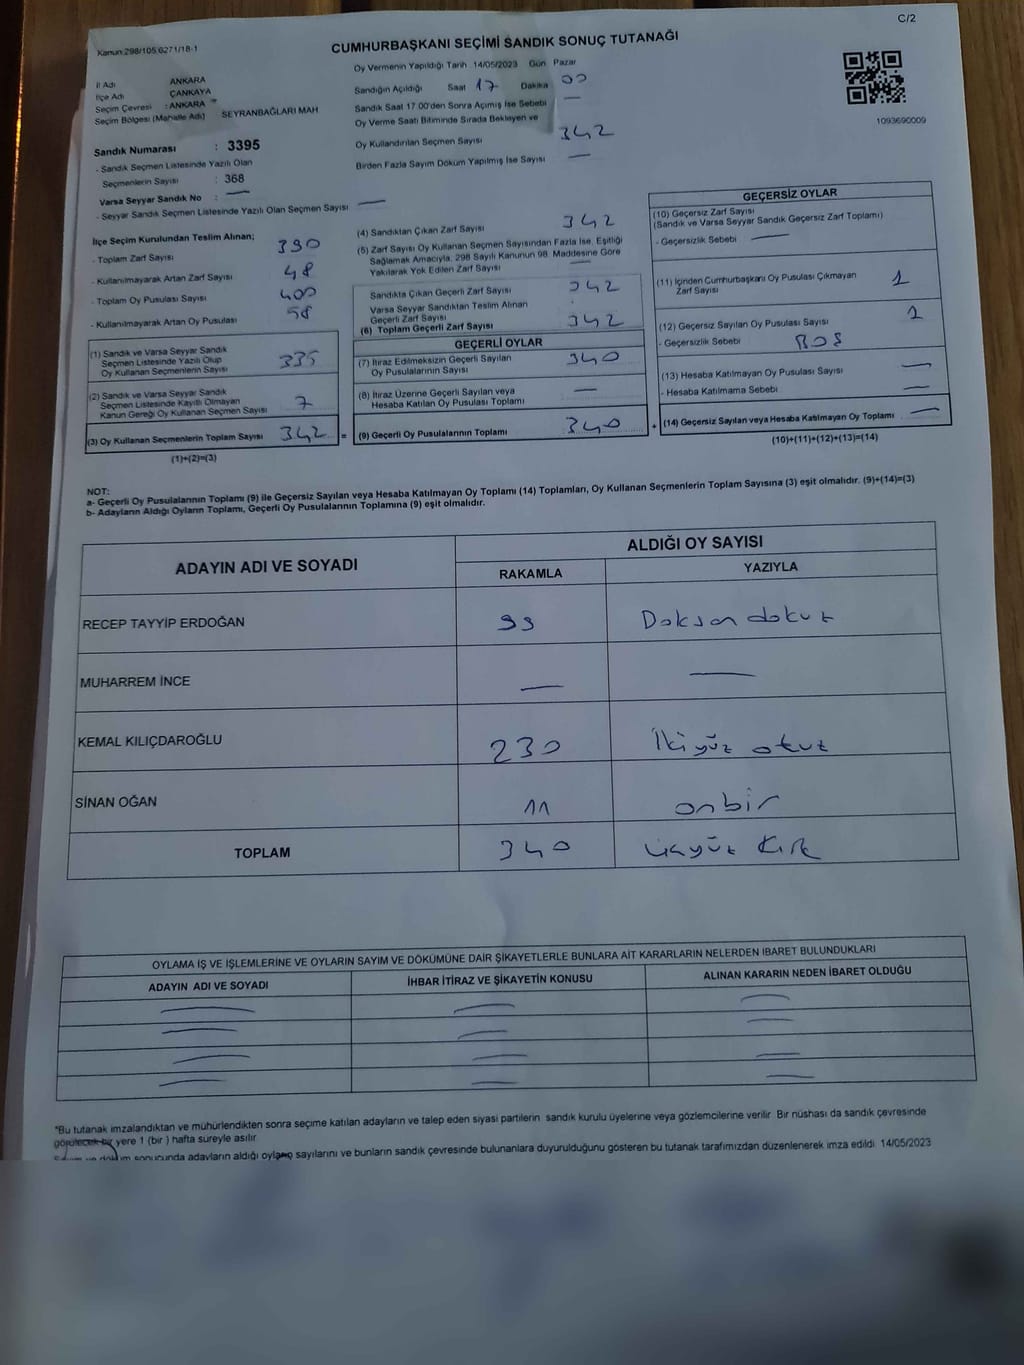 C/2
Kanun:298/105,6271/18-1
CUMHURBAŞKANI SEÇİMİ SANDIK SONUÇ TUTANAĞI
İl Adı ANKARA
İlçe Adı ÇANKAYA
Seçim Çevresi : ANKARA
Seçim Bölgesi (Mahalle Adı) SEYRANBAĞLARI MAH
Sandık Numarası : 3395
- Sandık Seçmen Listesinde Yazılı Olan
Seçmenlerin Sayısı : 368
Varsa Seyyar Sandık No : —
- Seyyar Sandık Seçmen Listesinde Yazılı Olan Seçmen Sayısı —
Oy Vermenin Yapıldığı Tarih 14/05/2023 Gün Pazar
Sandığın Açıldığı Saat 17 Dakika 00
Sandık Saat 17.00'den Sonra Açımış İse Sebebi —
Oy Verme Saati Bitiminde Sırada Bekleyen ve
Oy Kullandırılan Seçmen Sayısı 342
Birden Fazla Sayım Döküm Yapılmış İse Sayısı —
1093690009
İlçe Seçim Kurulundan Teslim Alınan;
- Toplam Zarf Sayısı 390
- Kullanılmayarak Artan Zarf Sayısı 48
- Toplam Oy Pusulası Sayısı 400
- Kullanılmayarak Artan Oy Pusulası 58
(1) Sandık ve Varsa Seyyar Sandık
Seçmen Listesinde Yazılı Olup
Oy Kullanan Seçmenlerin Sayısı 335
(2) Sandık ve Varsa Seyyar Sandık
Seçmen Listesinde Kayıtlı Olmayan
Kanun Gereği Oy Kullanan Seçmen Sayısı 7
(3) Oy Kullanan Seçmenlerin Toplam Sayısı 342 =
(1)+(2)=(3)
(4) Sandıktan Çıkan Zarf Sayısı 342
(5) Zarf Sayısı Oy Kullanan Seçmen Sayısından Fazla İse, Eşitliği
Sağlamak Amacıyla, 298 Sayılı Kanunun 98. Maddesine Göre
Yakılarak Yok Edilen Zarf Sayısı —
Sandıkta Çıkan Geçerli Zarf Sayısı 342
Varsa Seyyar Sandıktan Teslim Alınan
Geçerli Zarf Sayısı
(6) Toplam Geçerli Zarf Sayısı 342
GEÇERLİ OYLAR
(7) İtiraz Edilmeksizin Geçerli Sayılan
Oy Pusulalarının Sayısı 340
(8) İtiraz Üzerine Geçerli Sayılan veya
Hesaba Katılan Oy Pusulası Toplamı —
(9) Geçerli Oy Pusulalarının Toplamı 340 +
GEÇERSİZ OYLAR
(10) Geçersiz Zarf Sayısı
(Sandık ve Varsa Seyyar Sandık Geçersiz Zarf Toplamı)
- Geçersizlik Sebebi —
(11) İçinden Cumhurbaşkanı Oy Pusulası Çıkmayan
Zarf Sayısı 1
(12) Geçersiz Sayılan Oy Pusulası Sayısı 1
- Geçersizlik Sebebi BOŞ
(13) Hesaba Katılmayan Oy Pusulası Sayısı —
- Hesaba Katılmama Sebebi —
(14) Geçersiz Sayılan veya Hesaba Katılmayan Oy Toplamı —
(10)+(11)+(12)+(13)=(14)
NOT:
a- Geçerli Oy Pusulalarının Toplamı (9) ile Geçersiz Sayılan veya Hesaba Katılmayan Oy Toplamı (14) Toplamları, Oy Kullanan Seçmenlerin Toplam Sayısına (3) eşit olmalıdır. (9)+(14)=(3)
b- Adayların Aldığı Oyların Toplamı, Geçerli Oy Pusulalarının Toplamına (9) eşit olmalıdır.
ADAYIN ADI VE SOYADI ALDIĞI OY SAYISI
RAKAMLA YAZIYLA
RECEP TAYYİP ERDOĞAN 99 Doksan dokuz
MUHARREM İNCE — —
KEMAL KILIÇDAROĞLU 230 İkiyüz otuz
SİNAN OĞAN 11 onbir
TOPLAM 340 üçyüz Kırk
OYLAMA İŞ VE İŞLEMLERİNE VE OYLARIN SAYIM VE DÖKÜMÜNE DAİR ŞİKAYETLERLE BUNLARA AİT KARARLARIN NELERDEN İBARET BULUNDUKLARI
ADAYIN ADI VE SOYADI İHBAR İTİRAZ VE ŞİKAYETİN KONUSU ALINAN KARARIN NEDEN İBARET OLDUĞU
*Bu tutanak imzalandıktan ve mühürlendikten sonra seçime katılan adayların ve talep eden siyasi partilerin sandık kurulu üyelerine veya gözlemcilerine verilir. Bir nüshası da sandık çevresinde
görülecek bir yere 1 (bir ) hafta süreyle asılır.
Sayım ve döküm sonucunda adayların aldığı oyların sayılarını ve bunların sandık çevresinde bulunanlara duyurulduğunu gösteren bu tutanak tarafımızdan düzenlenerek imza edildi. 14/05/2023